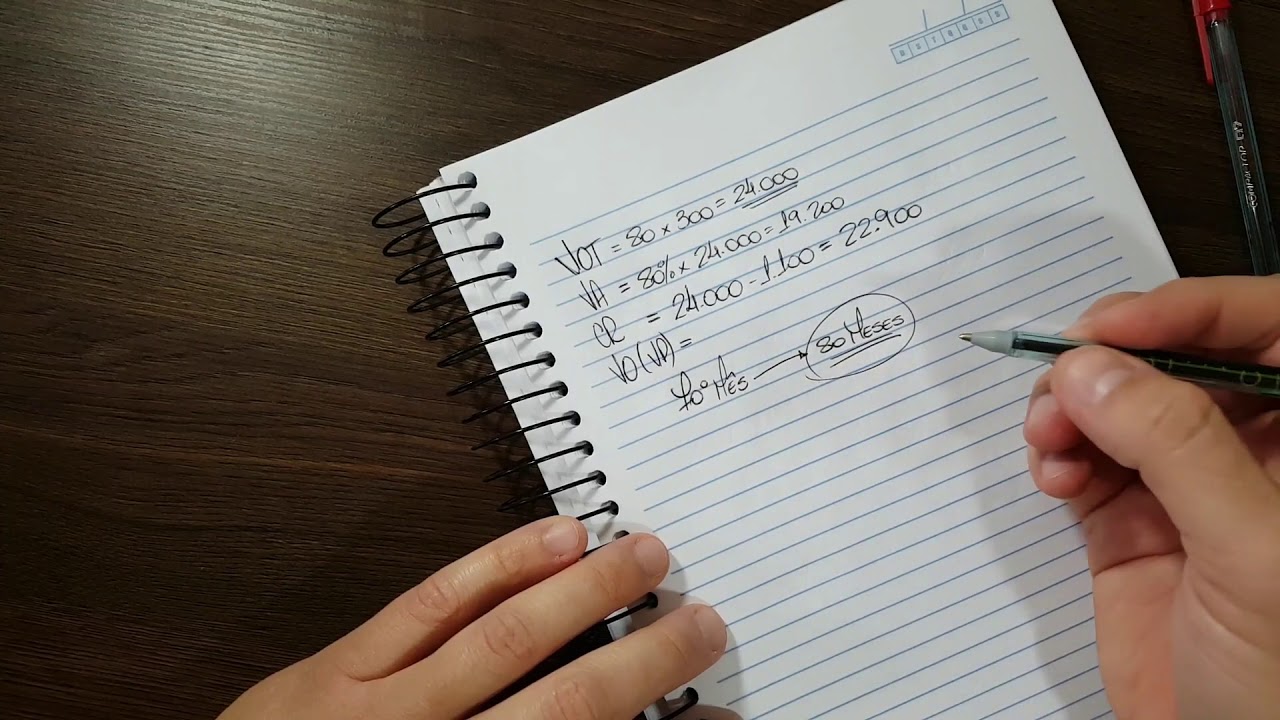 D S T Q Q S S
VOT = 80 x 300 = 24.000
VA = 80% x 24.000 = 19.200
CR = 24.000 - 1.100 = 22.900
VO(VD) =
10º MÊS → 80 MESES
COMPACTOR